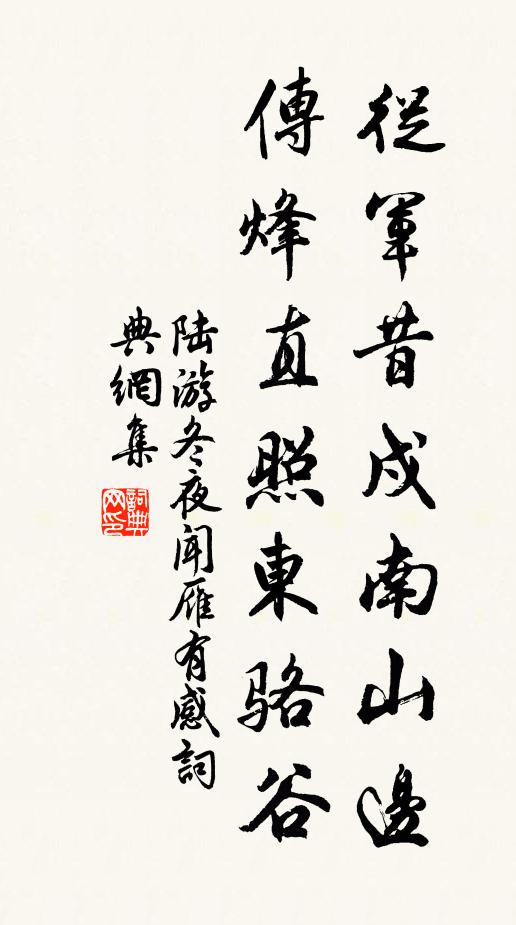 從軍昔戍南山邊
傳烽直照東骆谷
陆游冬夜闻雁有感詞
典網集
詞典
网印